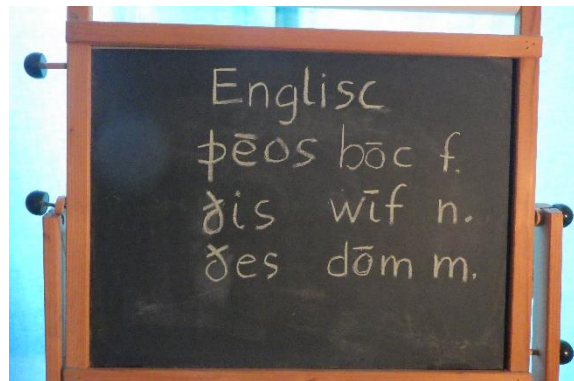 Englisc
þēos bōc f.
ðis wīf n.
ðes dōm m.